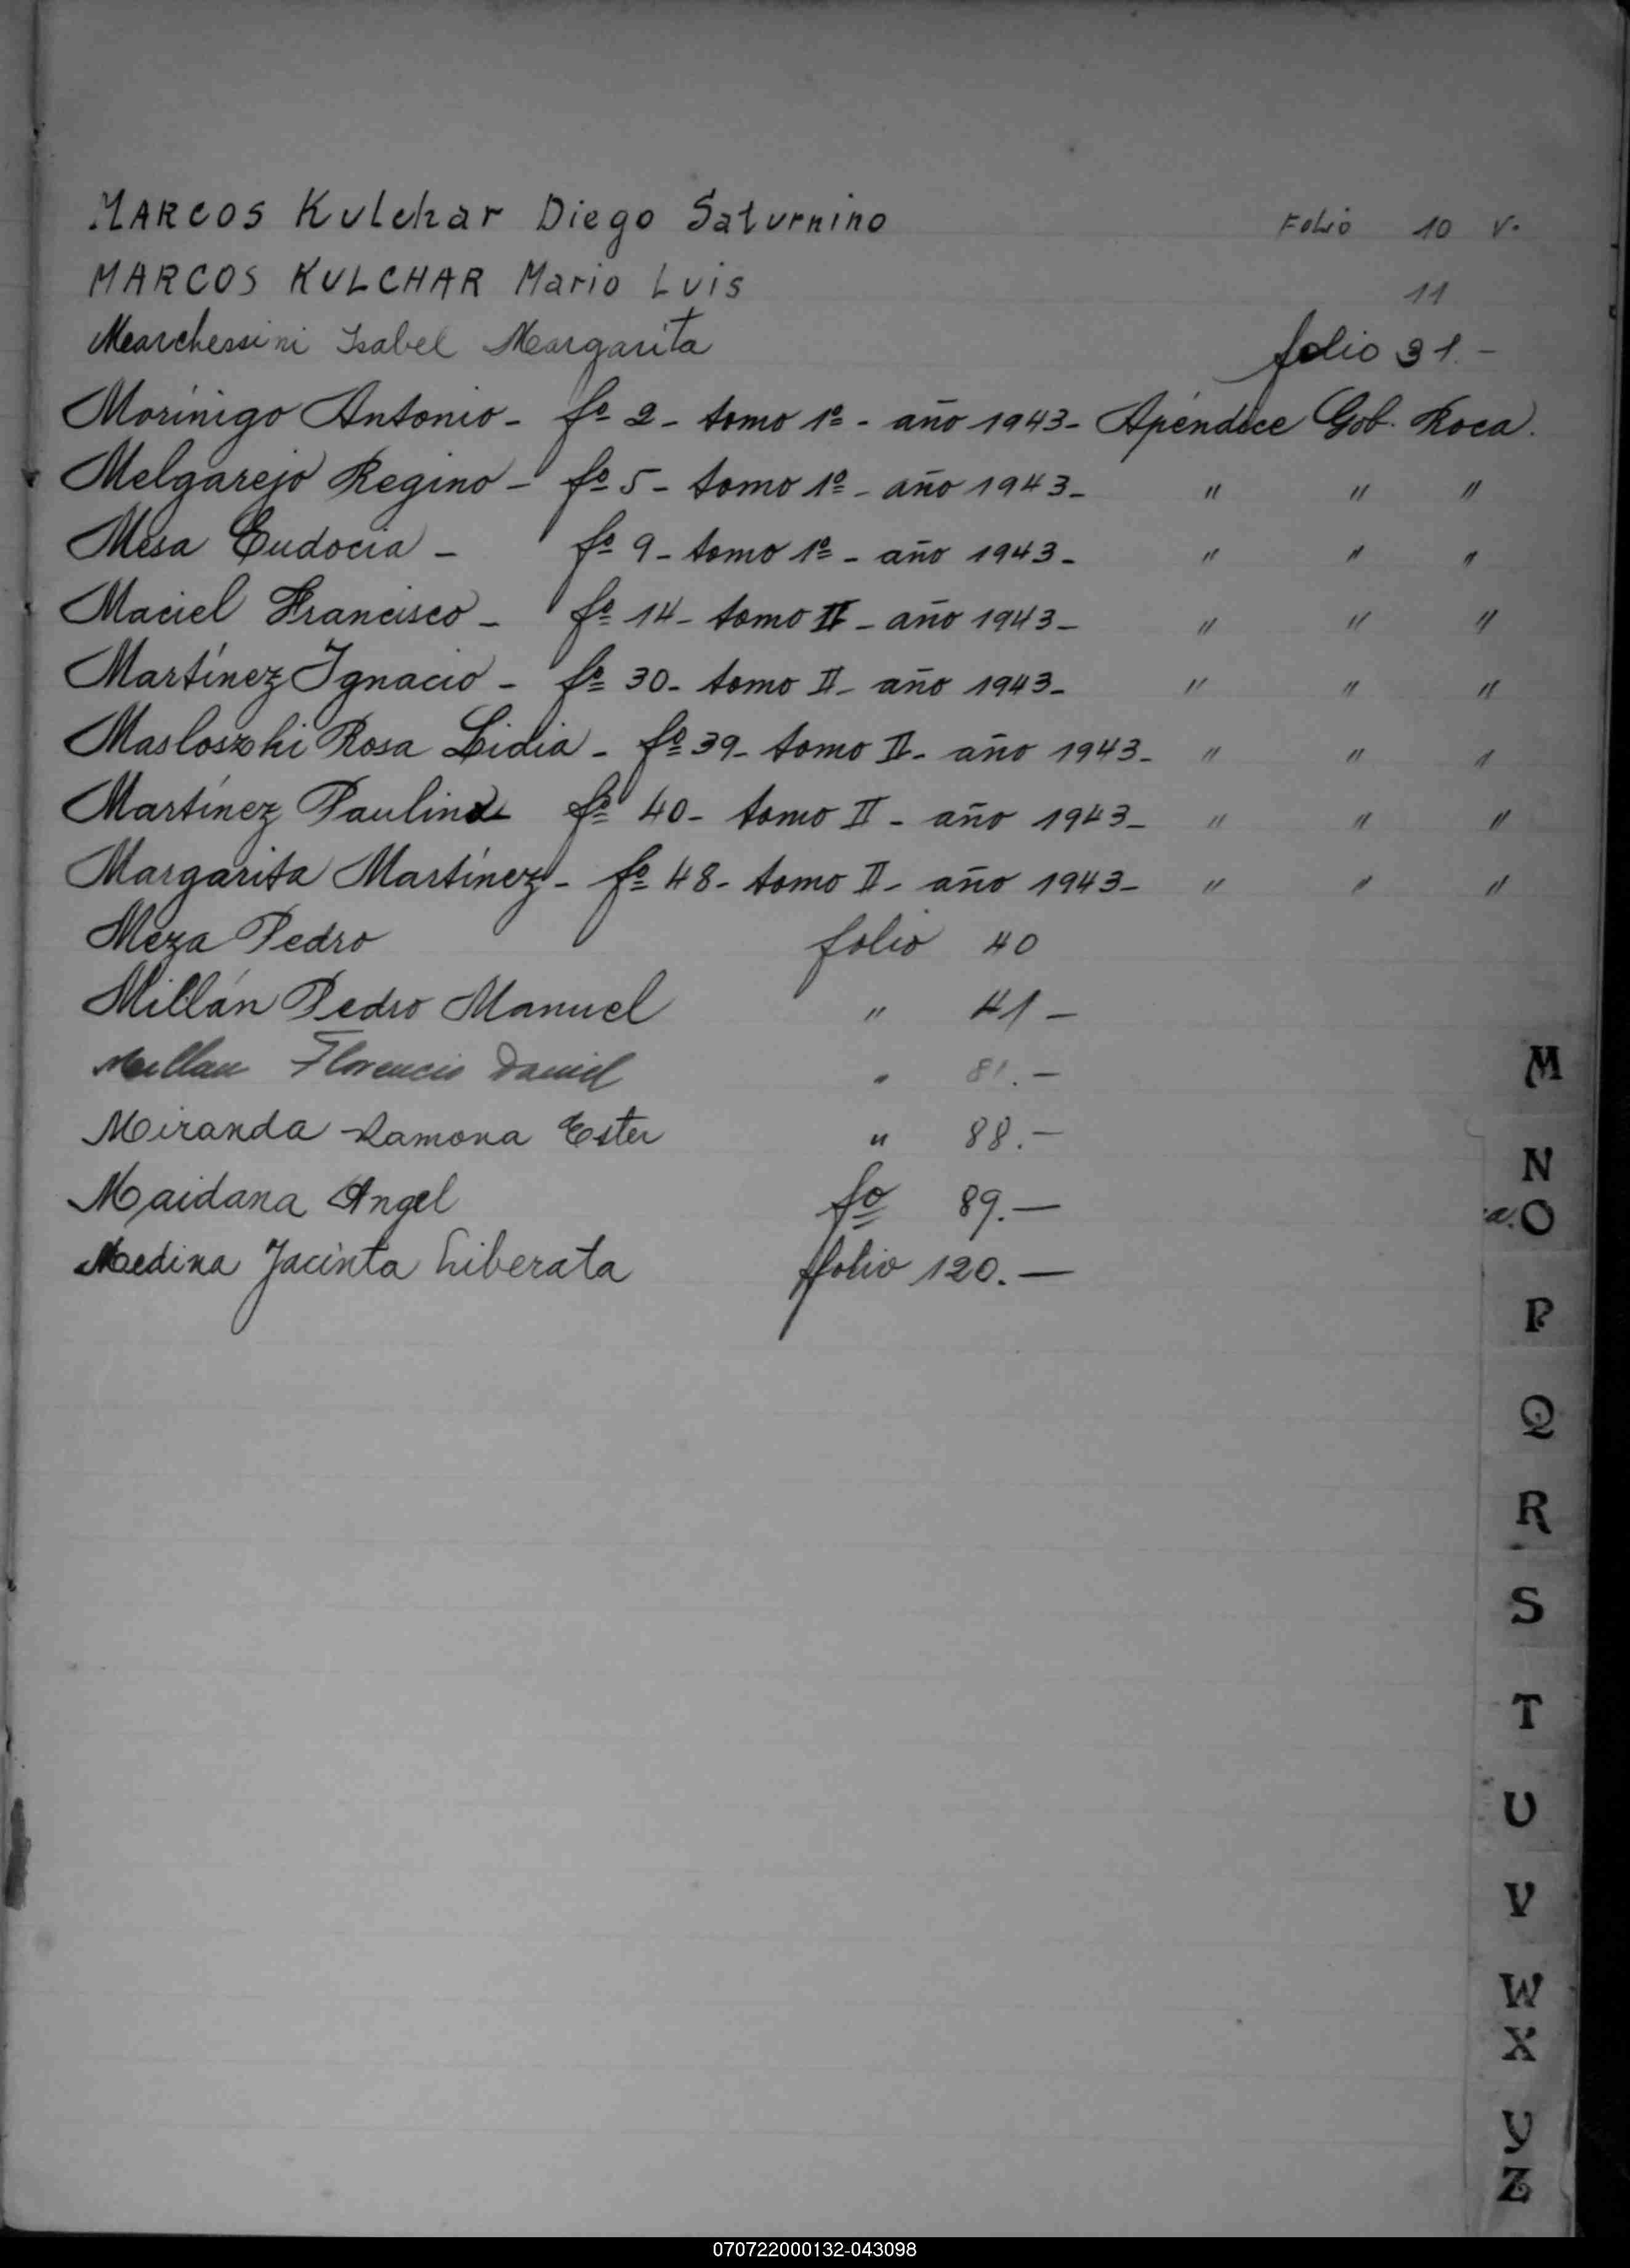 MARCOS Kulchar Diego Saturnino Folio 10 v.
MARCOS KULCHAR Mario Luis 11
Marchessini Isabel Margarita folio 31.-
Morínigo Antonio - fº 2 - tomo 1º - año 1943 - Apéndice Gob. Roca.
Melgarejo Regino - fº 5 - tomo 1º - año 1943 - " " "
Mesa Eudocia - fº 9 - tomo 1º - año 1943 - " " "
Maciel Francisco - fº 14 - tomo II - año 1943 - " " "
Martínez Ignacio - fº 30 - tomo II - año 1943 - " " "
Masloszki Rosa Lidia - fº 39 - tomo II - año 1943 - " " "
Martínez Paulina fº 40 - tomo II - año 1943 - " " "
Margarita Martínez - fº 48 - tomo II - año 1943 - " " "
Meza Pedro folio 40
Millán Pedro Manuel " 41 -
Millan Florencio Daniel " 81.-
Miranda Ramona Ester " 88.-
Maidana Angel fº 89.-
Medina Jacinta Liberata folio 120.-
M
N
a. O
P
Q
R
S
T
U
V
W
X
Y
Z
070722000132-043098